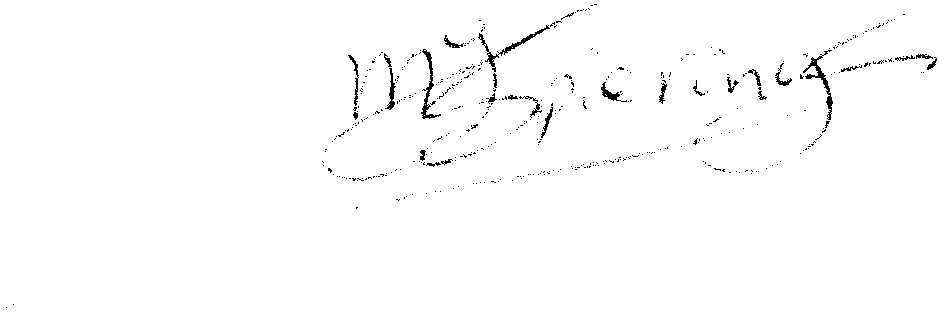 MJ Spiering